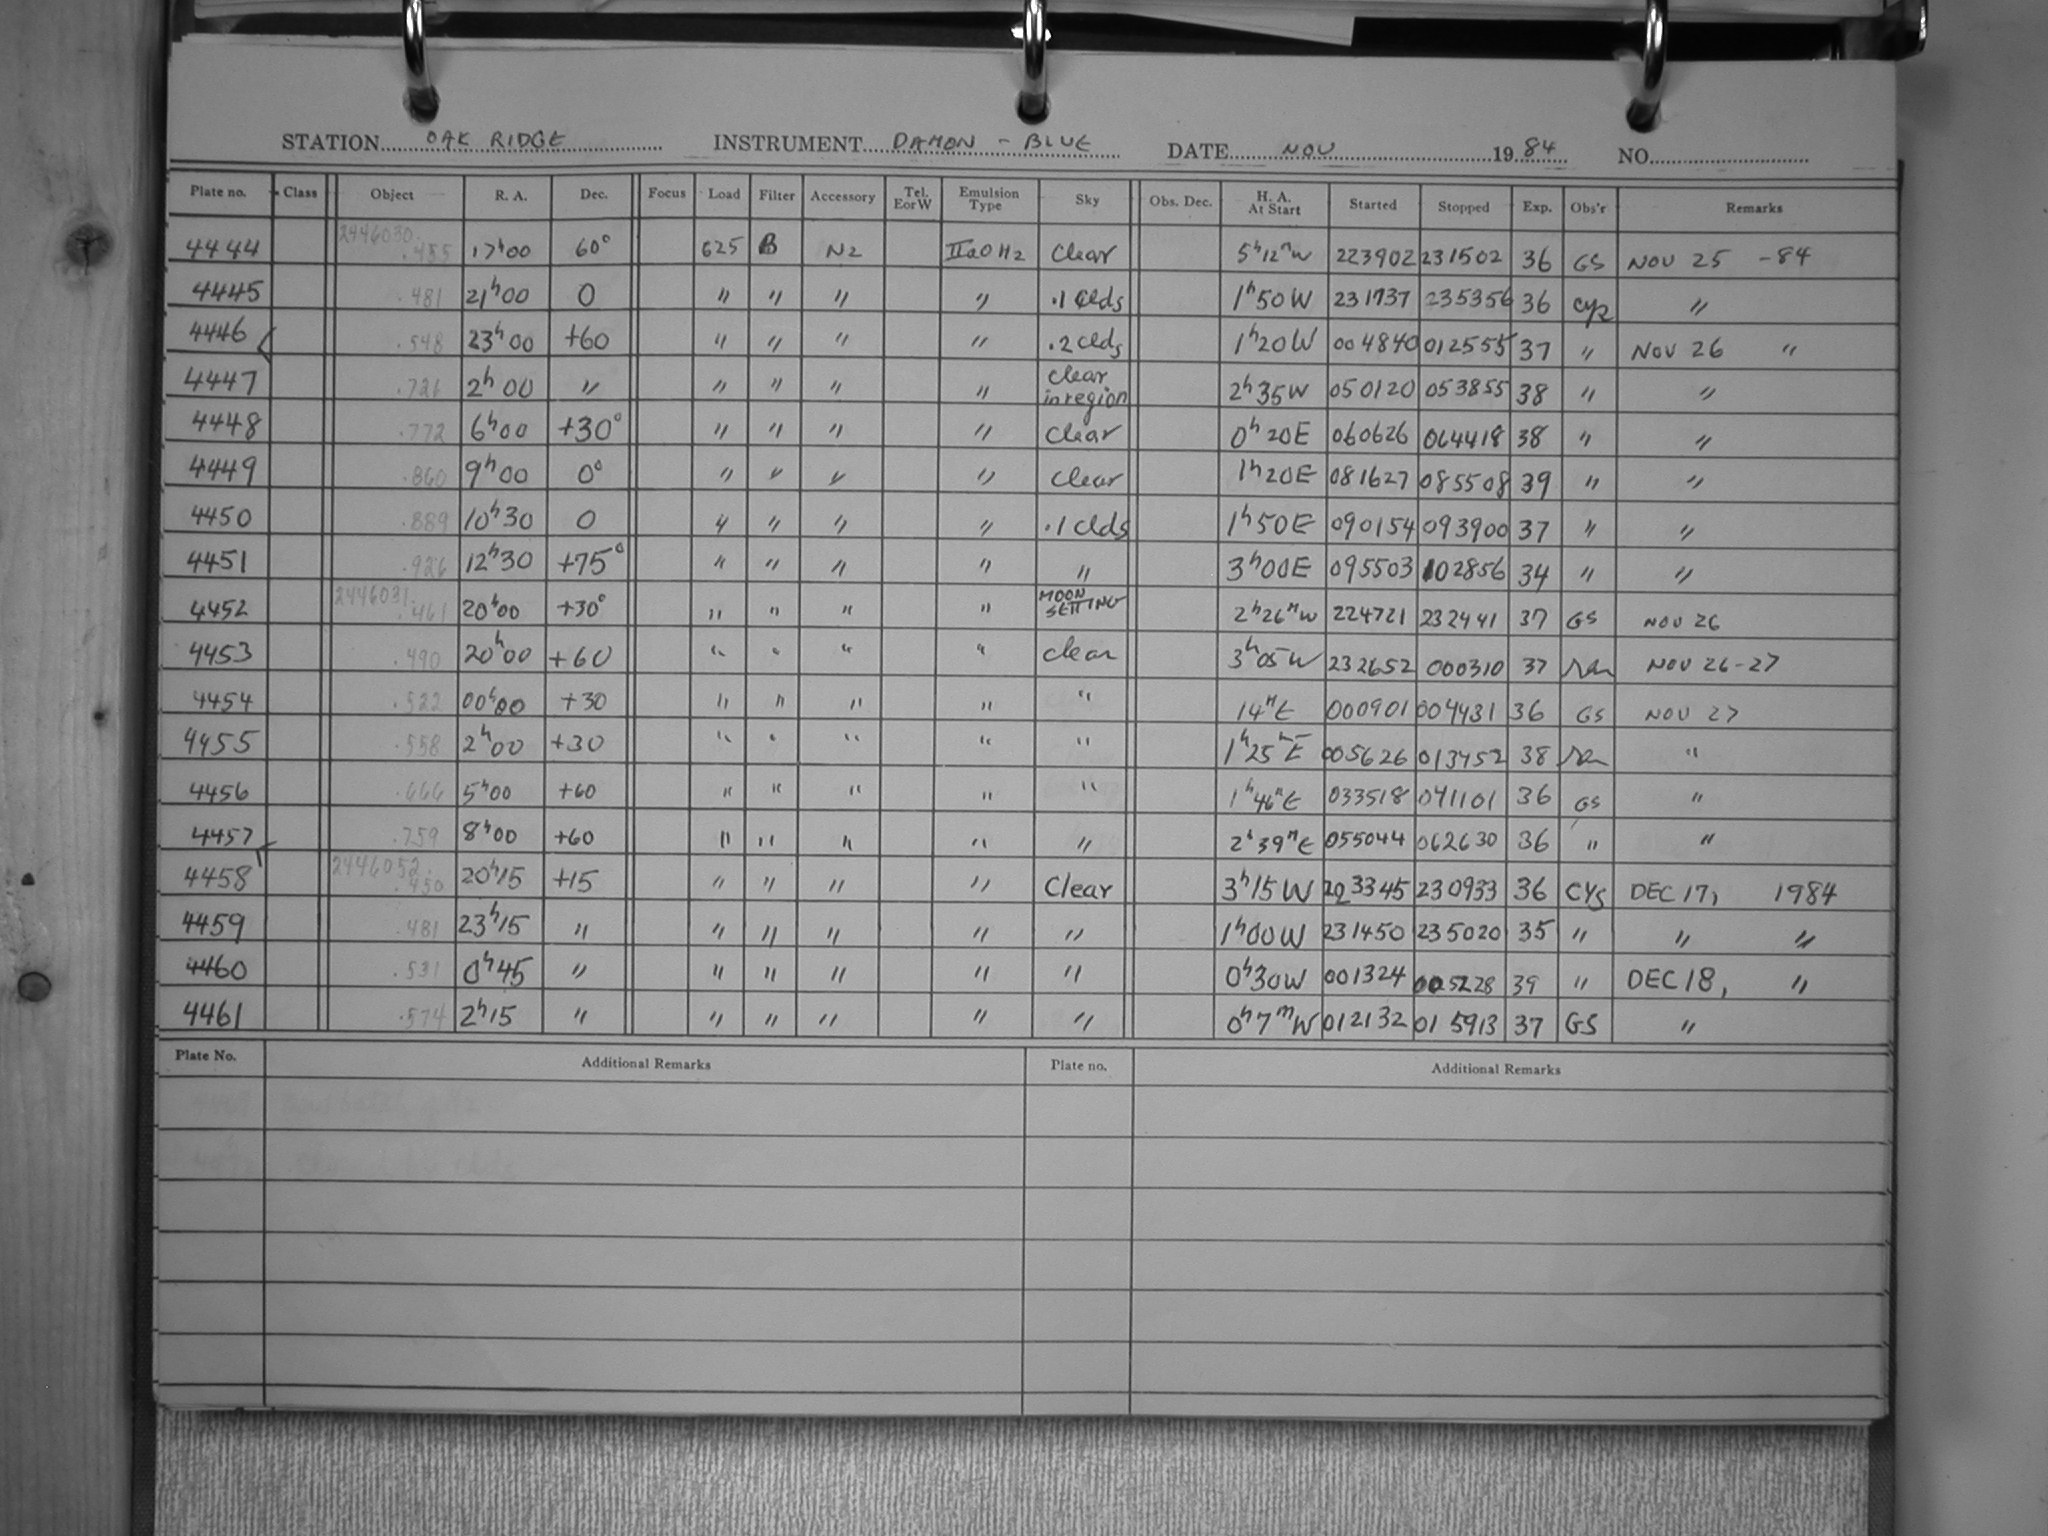 STATION OAK RIDGE INSTRUMENT DAMON - BLUE DATE NOV 1984 NO.
Plate no. Class Object R. A. Dec. Focus Load Filter Accessory Tel. E or W Emulsion Type Sky Obs. Dec. H. A. At Start Started Stopped Exp. Obs'r Remarks
4444 2446030. .455 17h00 60° 625 B N2 IIaOH2 Clear 5h12m W 223902 231502 36 GS NOV 25 -84
4445 .481 21h00 0 " " " " .1 Clds 1h50W 231737 235356 36 "
4446 .548 23h00 +60 " " " " .2 Clds 1h20W 004840 012555 37 " NOV 26 "
4447 .726 2h00 " " " " " Clear in region 2h35W 050120 053855 38 " "
4448 .772 6h00 +30° " " " " Clear 0h20E 060626 064418 38 " "
4449 .860 9h00 0° " " " " Clear 1h20E 081627 085508 39 " "
4450 .889 10h30 0 " " " " .1 Clds 1h50E 090154 093900 37 " "
4451 .926 12h30 +75° " " " " " 3h00E 095503 102856 34 " "
4452 2446031. .461 20h00 +30° " " " " MOON SETTING 2h26m W 224721 232441 37 GS NOV 26
4453 .490 20h00 +60 " " " " clear 3h05W 232652 000310 37 NOV 26-27
4454 .522 00h00 +30 " " " " " 14m E 000901 004431 36 GS NOV 27
4455 .558 2h00 +30 " " " " " 1h25m E 005626 013452 38 "
4456 .666 5h00 +60 " " " " " 1h46m E 033518 041101 36 GS "
4457 .759 8h00 +60 " " " " " 2h39m E 055044 062630 36 " "
4458 2446052. .450 20h15 +15 " " " " Clear 3h15W 223345 230933 36 CYS DEC 17, 1984
4459 .481 23h15 " " " " " " 1h00W 231450 235020 35 " " "
4460 .531 0h45 " " " " " " 0h30W 001324 005228 39 " DEC 18, "
4461 .574 2h15 " " " " " " 0h7m W 012132 015913 37 GS "
Plate No. Additional Remarks Plate no. Additional Remarks